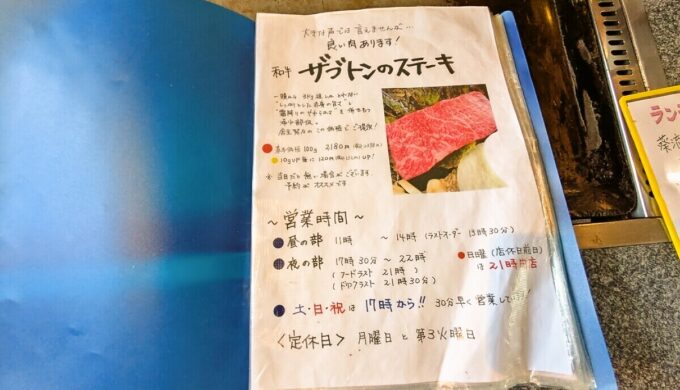 大きな声では言えませんが…
良い肉あります!
和牛 ザブトンのステーキ
一頭から 3kg 程しか とれない
"しっかりとした赤身の旨さ" と
"霜降りのやわらかさ" を
希少部位。
この価格で ご提供!
100g 2180円
10gUP毎に 120円 UP!
※ 当日だと 無い場合がございます
予約が オススメです
~ 営業時間 ~
昼の部 11時 ~ 14時 (ラストオーダー 13時30分)
夜の部 17時30分 ~ 22時
(フードラスト 21時)
(ドリンクラスト 21時30分)
日曜 (店休日前日)
は 21時閉店
土・日・祝は 17時から!! 30分早く営業してい
<定休日> 月曜日 と 第3火曜日
ラン